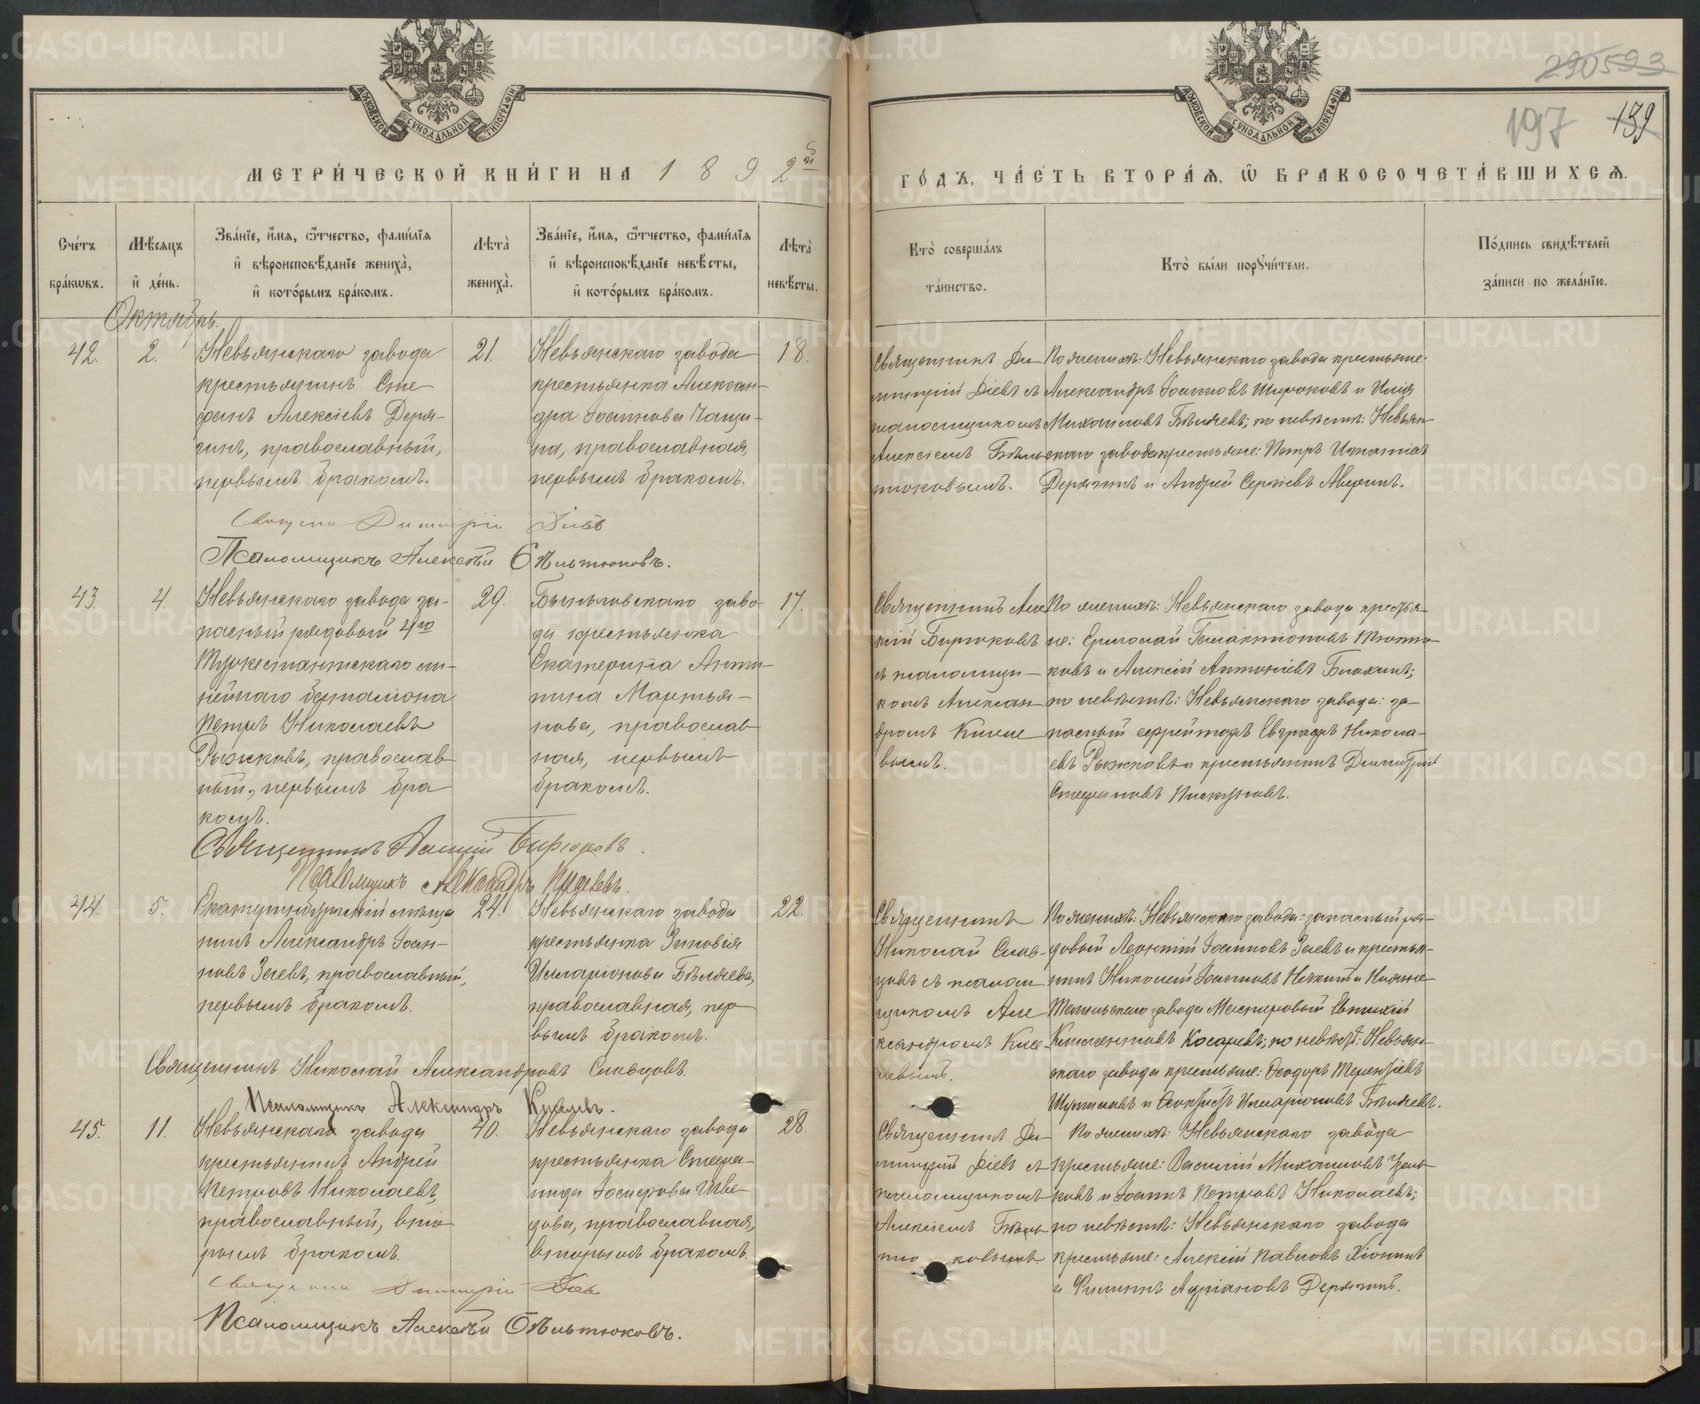 290593
197 139
МЕТРИ́ЧЕСКОЙ КНИ́ГИ НА 1892й
ГО́ДЪ, ЧА́СТЬ ВТОРА́Я, Ѡ БРАКОСОЧЕТА́ВШИХСЯ.
Сче́тъ бра́кѡвъ.
Мѣ́сяцъ и҆ де́нь.
Зва́нїе, и҆́мя, ѻ҆́тчество, фами́лїя
и҆ вѣроисповѣ́данїе жениха̀,
и҆ кото́рымъ бра́комъ.
Лѣта̀ жениха̀.
Зва́нїе, и҆́мя, ѻ҆́тчество, фами́лїя
и҆ вѣроисповѣ́данїе невѣ́сты,
и҆ кото́рымъ бра́комъ.
Лѣта̀ невѣ́сты.
Кто̀ соверша́лъ
та́инство.
Кто̀ бы́ли порꙋчи́тели.
По́дпись свидѣ́телей
за́писи по жела́нїю.
Октябрь.
42.
2.
Невьянскаго завода
крестьянинъ Сте-
фанъ Алексіевъ Деря-
гинъ, православный,
первымъ бракомъ.
21.
Невьянскаго завода
крестьянка Алексан-
дра Іоаннова Чащи-
на, православная,
первымъ бракомъ.
18.
Священникъ Ди-
митрій Діевъ съ
псаломщикомъ
Алексіемъ Бѣль-
тюковымъ.
По женихѣ: Невьянскаго завода крестьяне:
Александръ Іоанновъ Широковъ и Илія
Михаиловъ Бѣляевъ; по невѣстѣ: Невьян-
скаго завода крестьяне: Петръ Игнатіевъ
Дерягинъ и Андрей Сергіевъ Аверинъ.
Священникъ Димитрій Діевъ
Псаломщикъ Алексѣй Бѣльтюковъ.
43.
4.
Невьянскаго завода за-
пасный рядовой 4го
Туркестантскаго ли-
нейнаго баталіона
Петръ Николаевъ
Рыжковъ, православ-
ный, первымъ бра-
комъ.
29.
Быньговскаго заво-
да крестьянка
Екатерина Анти-
пина Мартья-
нова, православ-
ная, первымъ
бракомъ.
17.
Священникъ Але-
ксій Бирюковъ
съ псаломщи-
комъ Алексан-
дромъ Кисе-
вымъ.
По женихѣ: Невьянскаго завода крестья-
не: Ермолай Галактіоновъ Тютю-
ковъ и Алексій Антоніевъ
по невѣстѣ: Невьянскаго завода: за-
пасный ефрейторъ Евграфъ Никола-
евъ Рыжковъ и крестьянинъ Димитрій
Стефановъ Пискуновъ.
Священникъ Алексій Бирюковъ.
Псаломщикъ Александръ
44.
5.
Екатеринбургскій мѣща-
нинъ Александръ Іоан-
новъ Зыевъ, православный,
первымъ бракомъ.
24.
Невьянскаго завода
крестьянка Зиновія
Иларіонова Бѣляева,
православная, пер-
вымъ бракомъ.
22.
Священникъ
Николай Слов-
цовъ съ псалом-
щикомъ Але-
ксандромъ Кисе-
левымъ.
По женихѣ: Невьянскаго завода: запасный ря-
довой Леонтій Іоанновъ Зыевъ и крестья-
нинъ Николай Іоанновъ и Нижне-
Тагильскаго завода Мастеровой Евтихій
Климентовъ Косаревъ; по невѣстѣ: Невьян-
скаго завода крестьяне: Ѳеодоръ Терентіевъ
и Иларіоновъ Бѣляевъ.
Священникъ Николай Александровъ Словцовъ
Псаломщикъ Александръ
45.
11.
Невьянскаго завода
крестьянинъ Андрей
Петровъ Николаевъ,
православный, вто-
рымъ бракомъ.
40.
Невьянскаго завода
крестьянка Стефа-
нида Іосифова Шве-
цова, православная,
вторымъ бракомъ.
28.
Священникъ Ди-
митрій Діевъ съ
псаломщикомъ
Алексіемъ Бѣль-
тюковымъ.
По женихѣ: Невьянскаго завода
крестьяне: Василій Михаиловъ
и Іоаннъ Петровъ Николаевъ;
по невѣстѣ: Невьянскаго завода
крестьяне: Алексій Павловъ Хіонинъ
и Филиппъ Адріановъ Дерягинъ.
Священникъ Димитрій Діевъ
Псаломщикъ Алексѣй Бѣльтюковъ.
METRIKI.GASO-URAL.RU